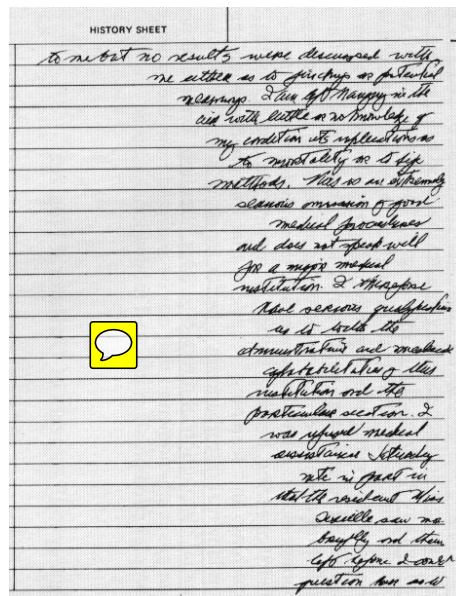 HISTORY SHEET
to me but no results were discussed with
me either as to findings or potential
meanings. I am left hanging in the
air with little or no knowledge of
my condition its implications as
to mortality or to life
methods. This is an extremely
serious omission of good
medical procedures
and does not speak well
for a major medical
institution. I therefore
have serious
as to both the
administrative and medical
of this
institution and the
particular section. I
was refused medical
assistance Saturday
nite in part in
that the resident Miss
saw me
briefly and then
left before I could
question her as to